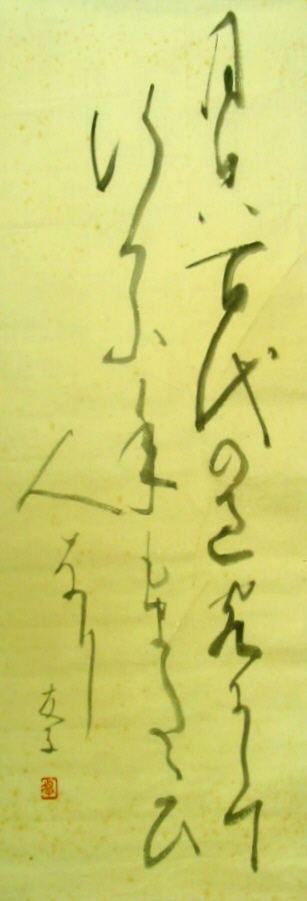 月日ハ百代の過客にして
行かふ年もまたたひ
人なり
友子